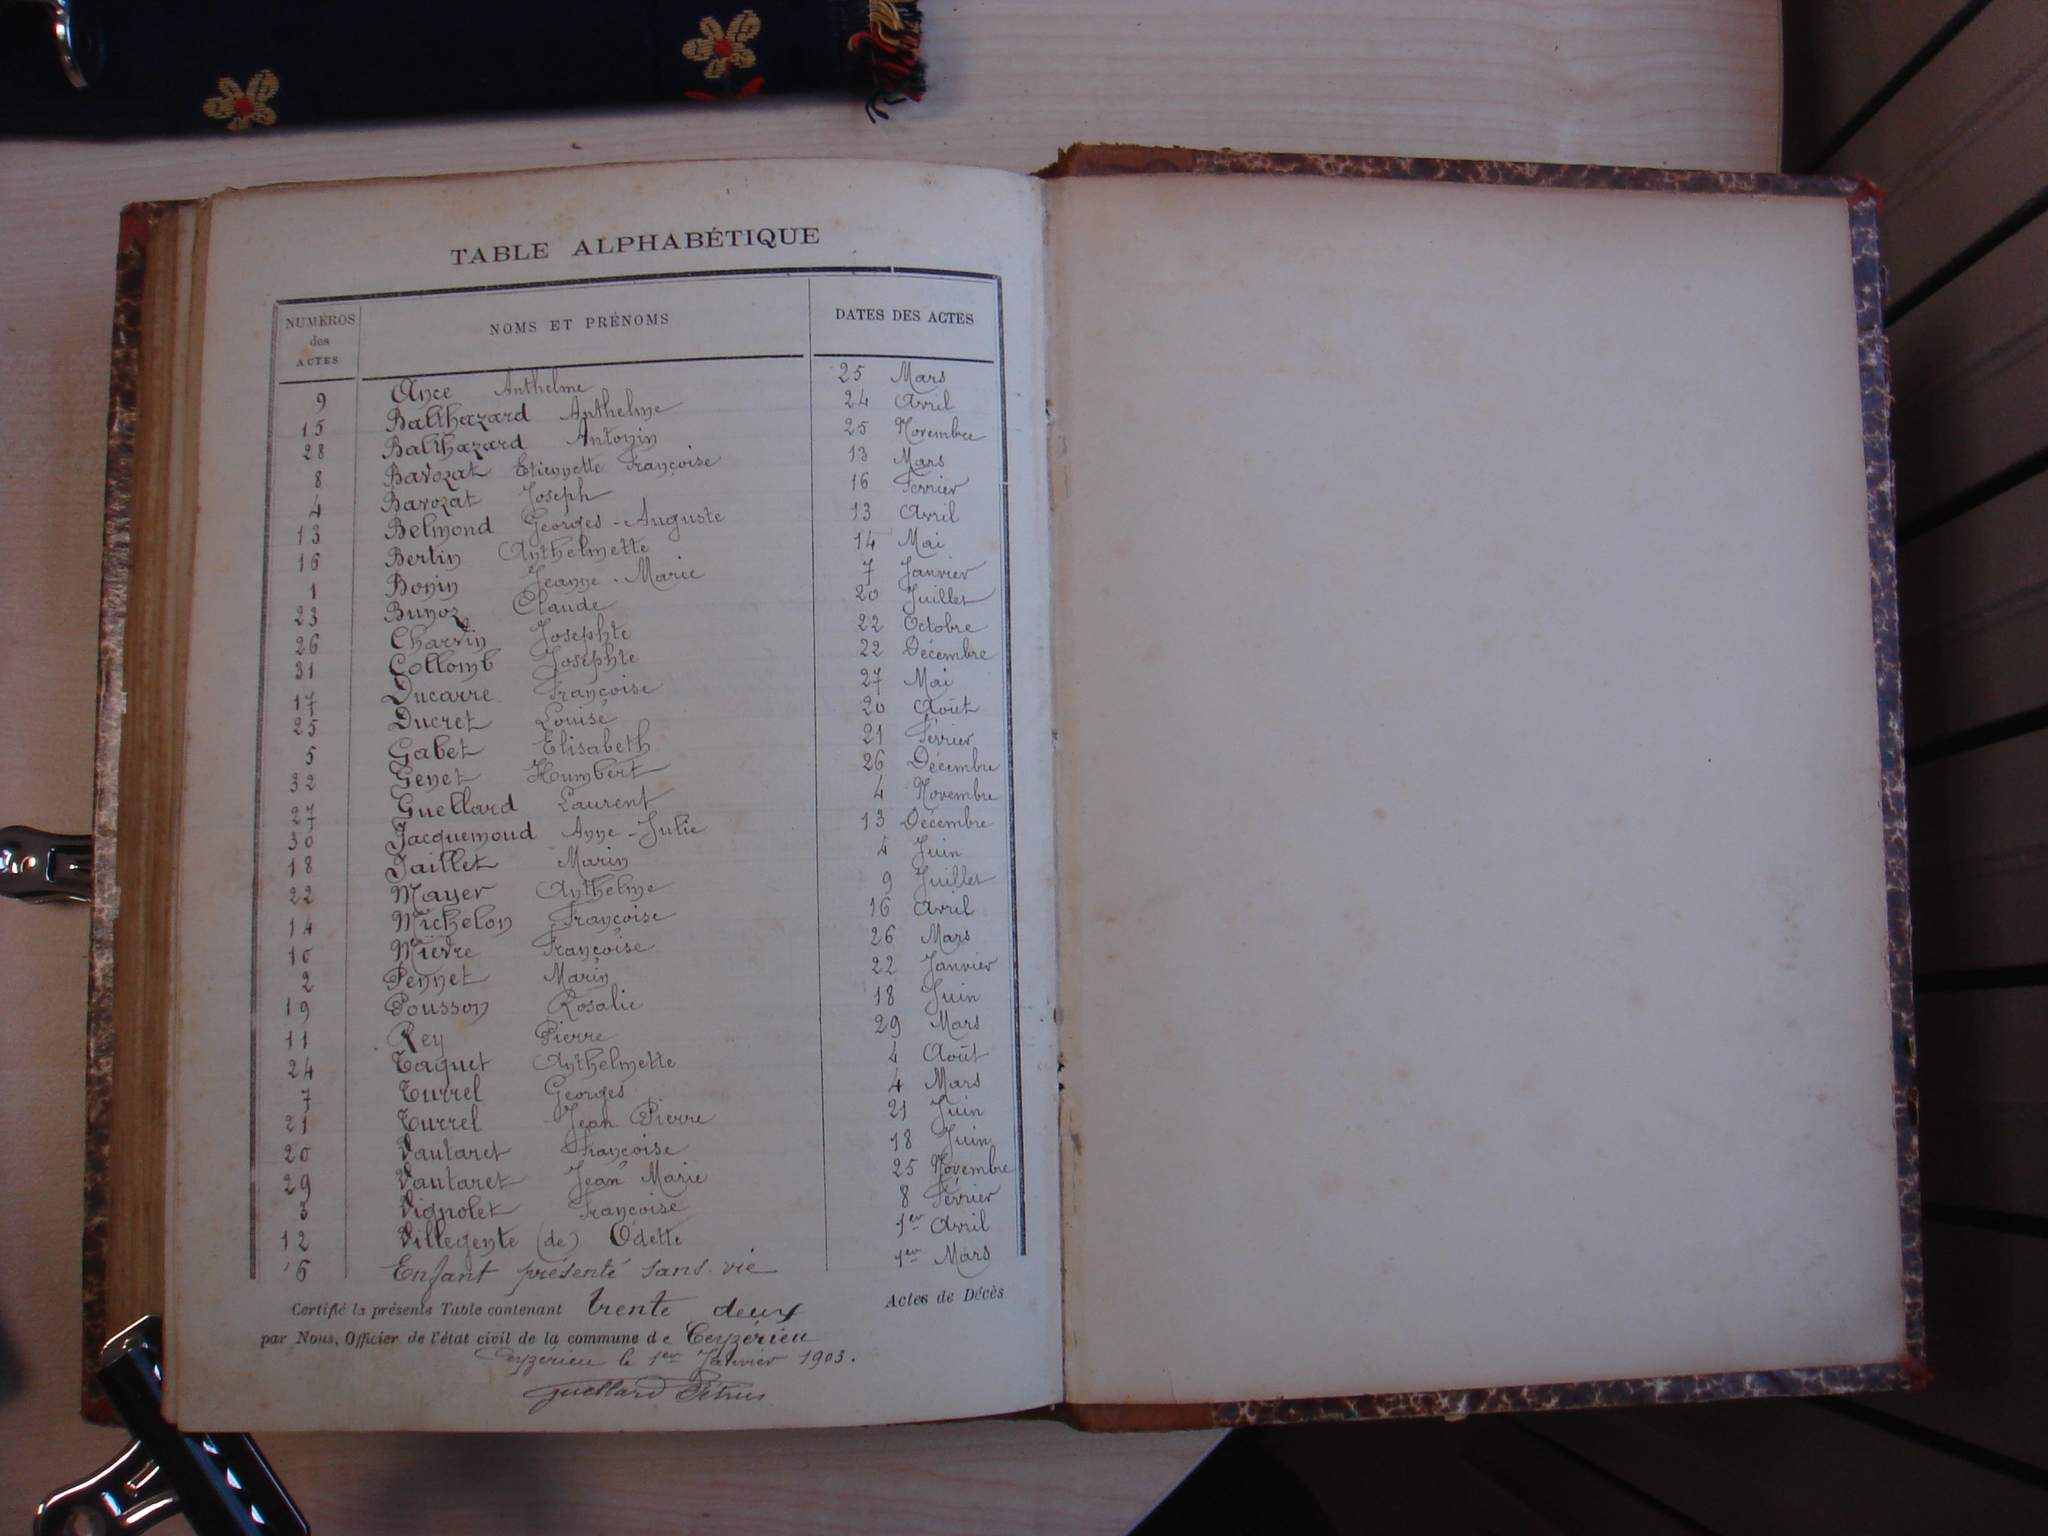 TABLE ALPHABÉTIQUE
NUMÉROS des ACTES NOMS ET PRÉNOMS DATES DES ACTES
9 Ance Anthelme 25 Mars
15 Balthazard Anthelme 24 Avril
28 Balthazard Antonin 25 Novembre
8 Bavozat Etiennette Françoise 13 Mars
4 Bavozat Joseph 16 Février
13 Belmond Georges-Auguste 13 Avril
16 Bertin Anthelmette 14 Mai
1 Bonin Jeanne-Marie 7 Janvier
23 Bunoz Claude 20 Juillet
26 Charvin Josephte 22 Octobre
31 Collomb Josephte 22 Décembre
17 Ducarre Françoise 27 Mai
25 Ducret Louise 20 Août
5 Gabet Elisabeth 21 Février
32 Genet Humbert 26 Décembre
27 Guellard Laurent 4 Novembre
30 Jacquemoud Anne-Julie 13 Décembre
18 Jaillet Marin Juin
22 Mayer Anthelme 9 Juillet
14 Michelon Françoise 16 Avril
10 Mièvre Françoise 26 Mars
2 Pennet Marin 22 Janvier
19 Pousson Rosalie 18 Juin
11 Rey Pierre 29 Mars
24 Taquet Anthelmette 4 Août
7 Turrel Georges 4 Mars
21 Turrel Jean Pierre 21 Juin
20 Vautaret Françoise 18 Juin
29 Vautaret Jean Marie 25 Novembre
3 Vignolet Françoise 8 Février
12 Villegente (de) Odette 1er Avril
6 Enfant présenté sans vie 1er Mars
Certifié la présente Table contenant trente deux Actes de Décès
par Nous, Officier de l'état civil de la commune de Ceyzérieu
Ceyzérieu le 1er Janvier 1903.
Guellard Pétrus